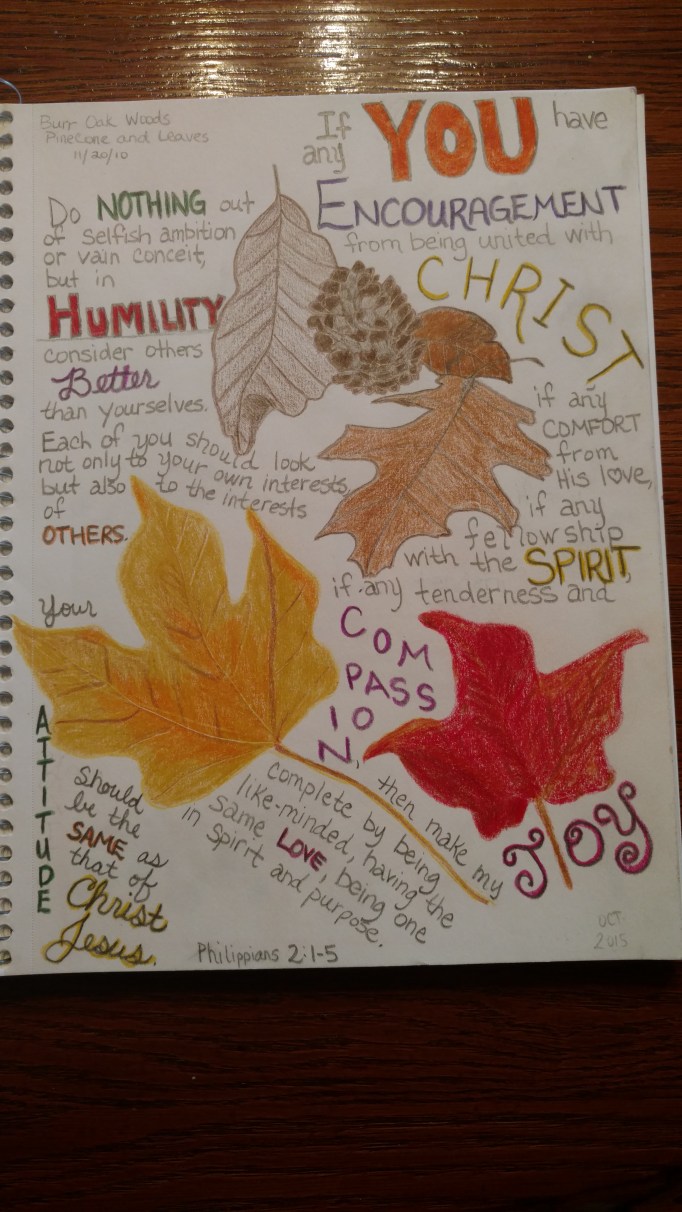 Burr Oak Woods
Pinecone and Leaves
11/20/10
If
any
YOU
have
ENCOURAGEMENT
from being united with
CHRIST
if any
COMFORT
from
His love,
if any
fellowship
with the SPIRIT,
if any tenderness and
COM
PASS
IO
N,
then make my
JOY
complete by being
like-minded, having the
same LOVE, being one
in spirit and purpose.
Do NOTHING out
of selfish ambition
or vain conceit,
but in
HUMILITY
consider others
Better
than yourselves.
Each of you should look
not only to your own interests,
but also to the interests
of
OTHERS.
Your
ATTITUDE
should
be the
SAME as
that of
Christ
Jesus.
Philippians 2:1-5
OCT
2015